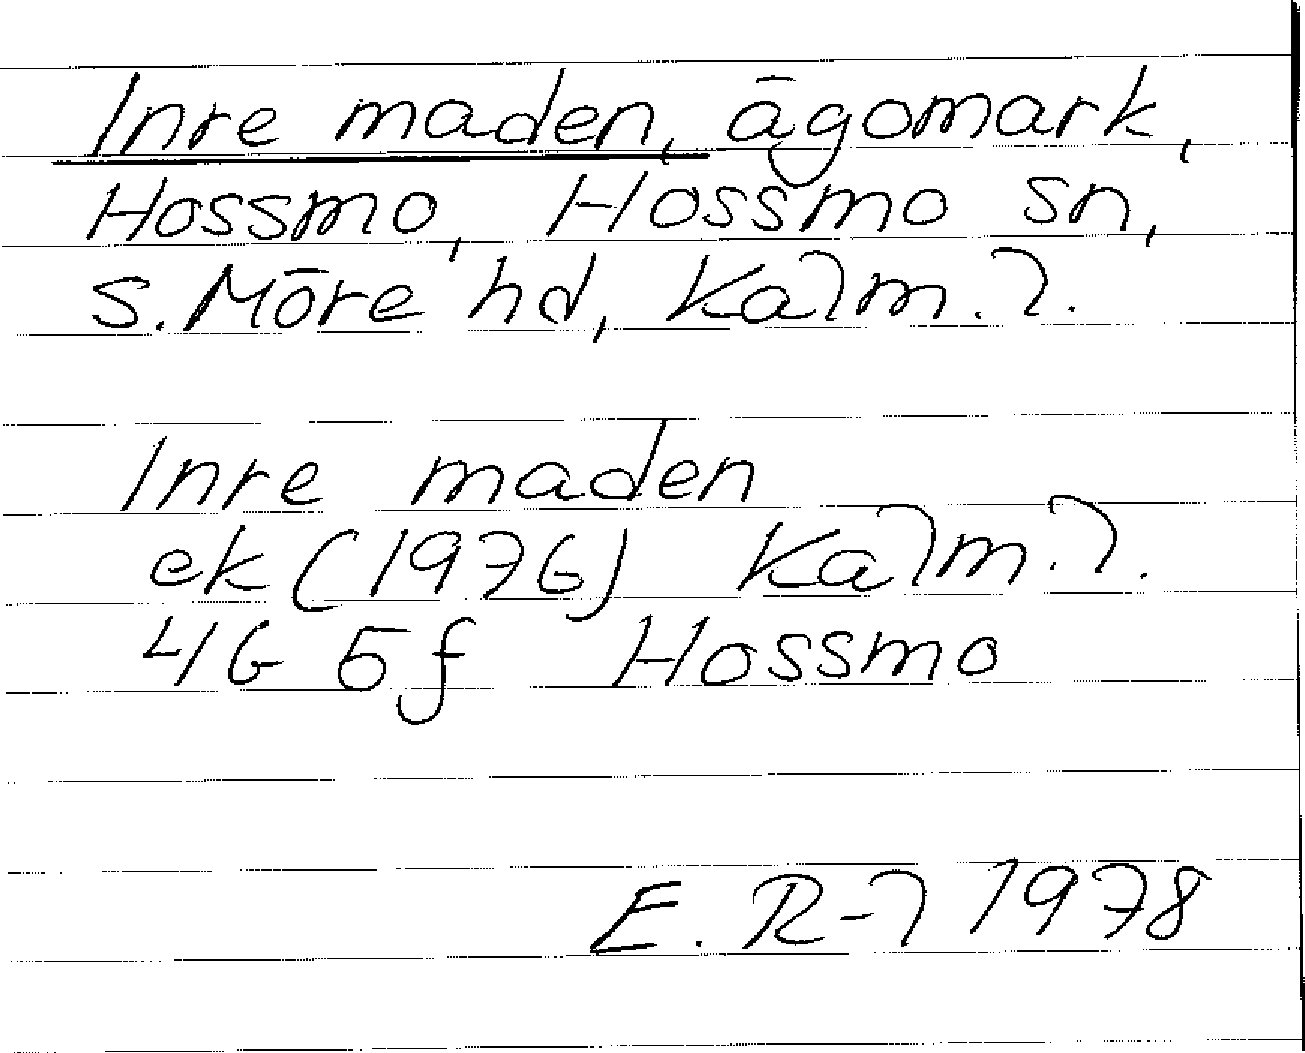 Inre maden, ägomark,
Hossmo, Hossmo sn,
S. Möre hd, Kalm. l.
Inre maden
ek (1976) Kalm. l.
4G 5f Hossmo
E. R-l 1978